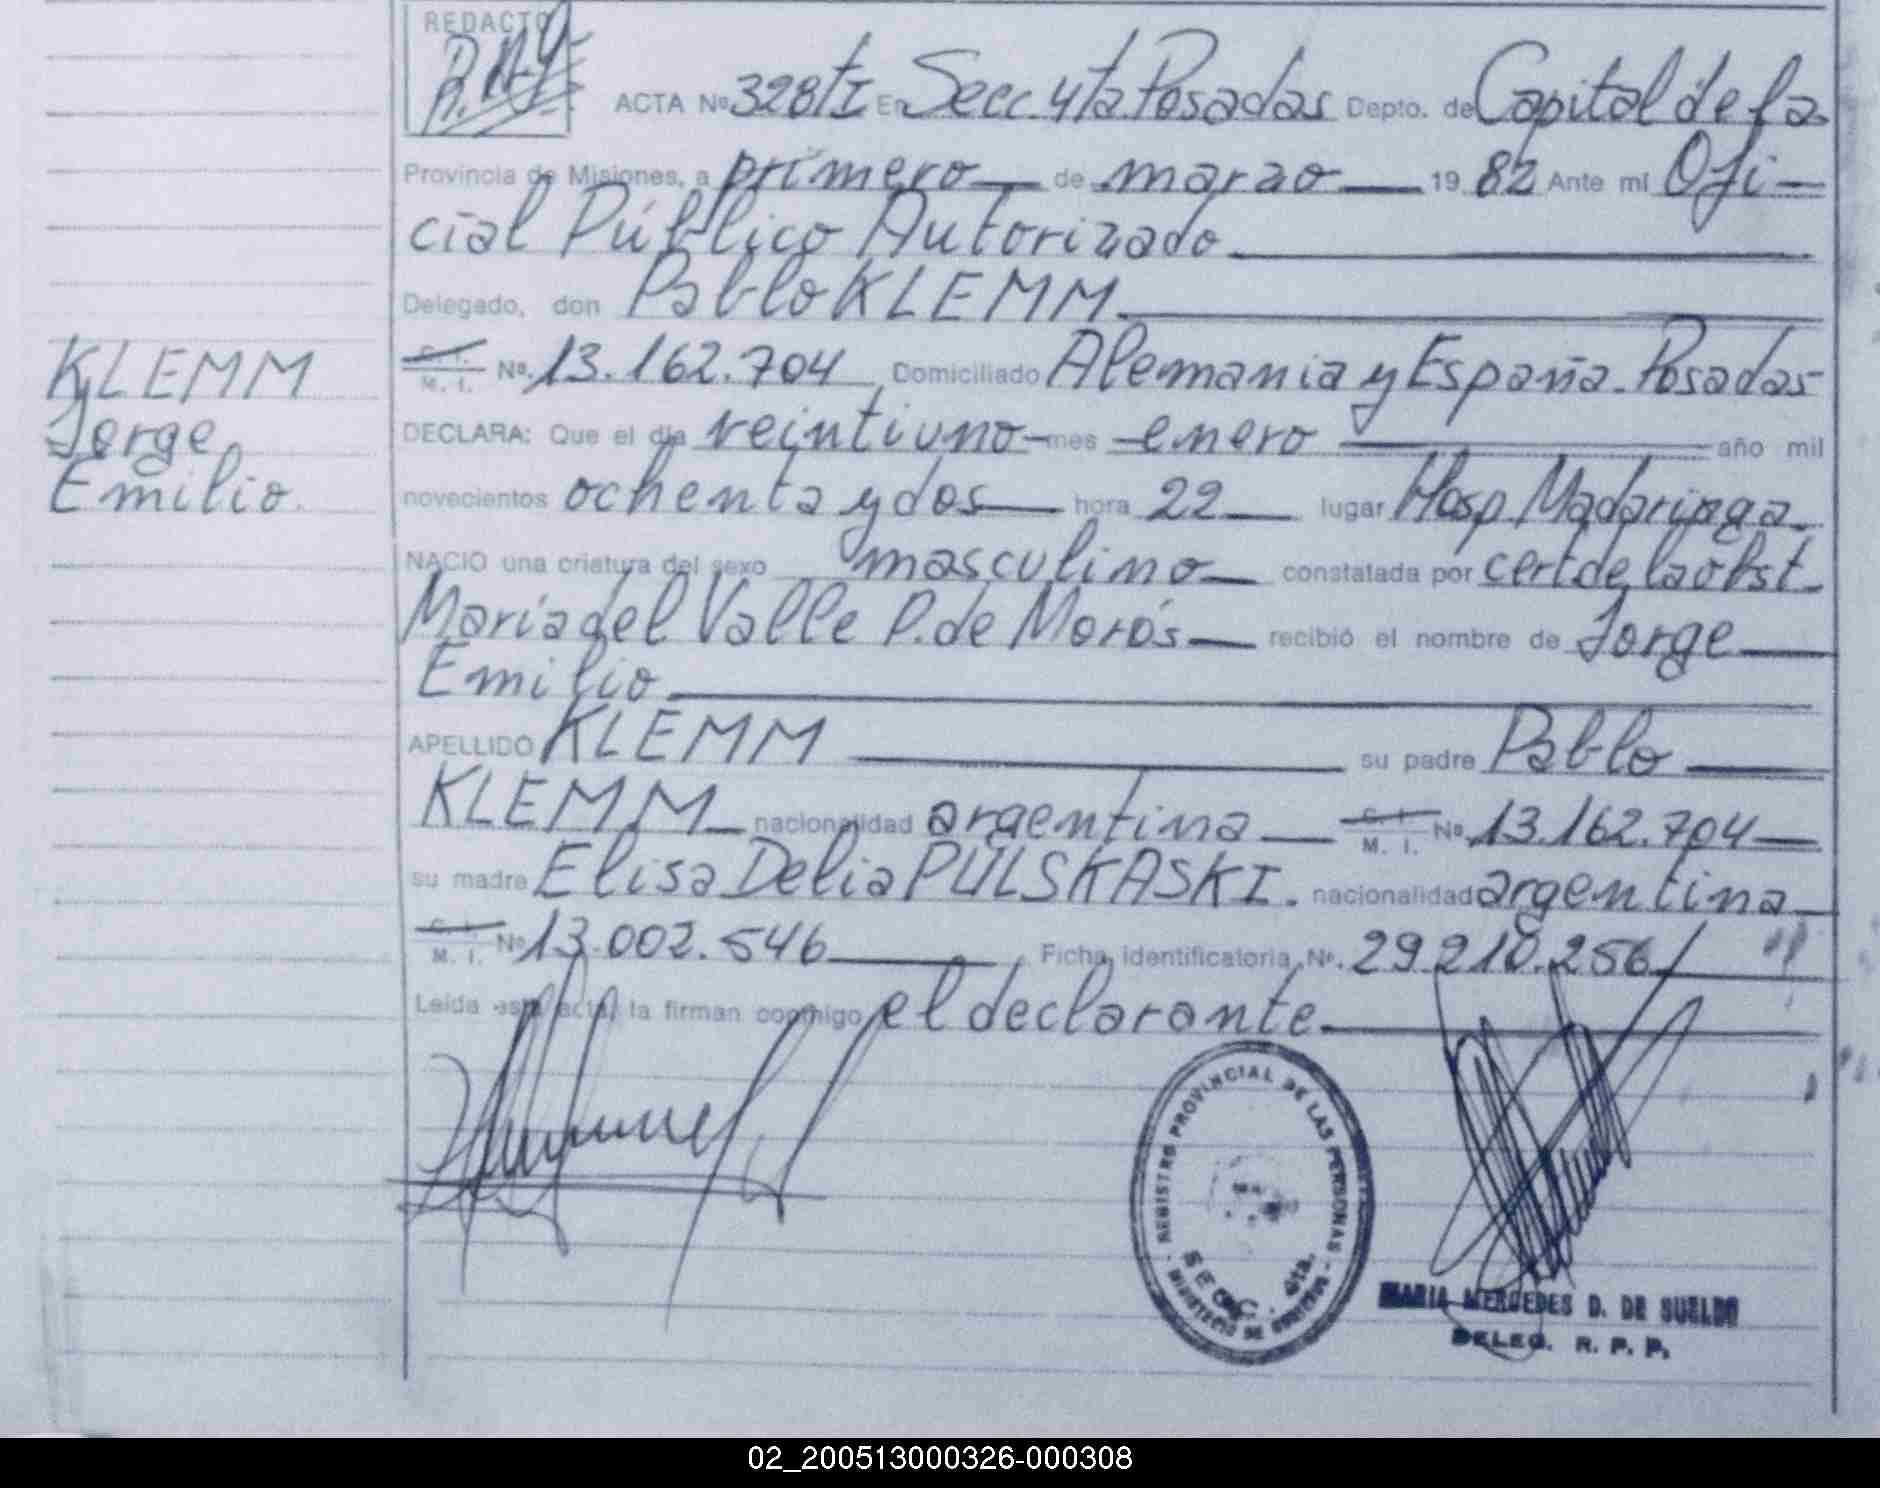 REDACTO
ACTA Nº 328/TI En Secc. 4ta. Posadas Depto. de Capital de la
Provincia de Misiones, a primero de marzo 19 82 Ante mi Ofi-
cial Público Autorizado
Delegado, don Pablo KLEMM
C. I. M. I. Nº. 13.162.704 Domiciliado Alemania y España. Posadas
DECLARA: Que el día veintiuno mes enero año mil
novecientos ochenta y dos hora 22 lugar Hosp. Madariaga
NACIO una criatura del sexo masculino constatada por cert de la obst.
María del Valle P. de Morós recibió el nombre de Jorge
Emilio
APELLIDO KLEMM su padre Pablo
KLEMM nacionalidad argentina C. I. M. I. Nº. 13.162.704
su madre Elisa Delia PULSKASKI. nacionalidad argentina
C. I. M. I. Nº 13.002.546 Ficha identificatoria Nº. 29.210.256
Leída esta acta, la firman conmigo el declarante
KLEMM
Jorge
Emilio.
REGISTRO PROVINCIAL DE LAS PERSONAS
SECC. 4ta.
MINISTERIO DE GOBIERNO
MARIA MERCEDES D. DE SUELDO
DELEG. R. P. P.
02_200513000326-000308